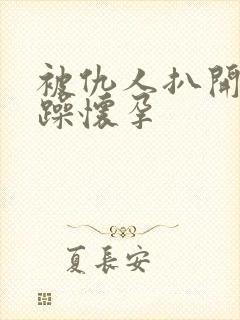 被仇人扒開
躁懷孕
夏長安